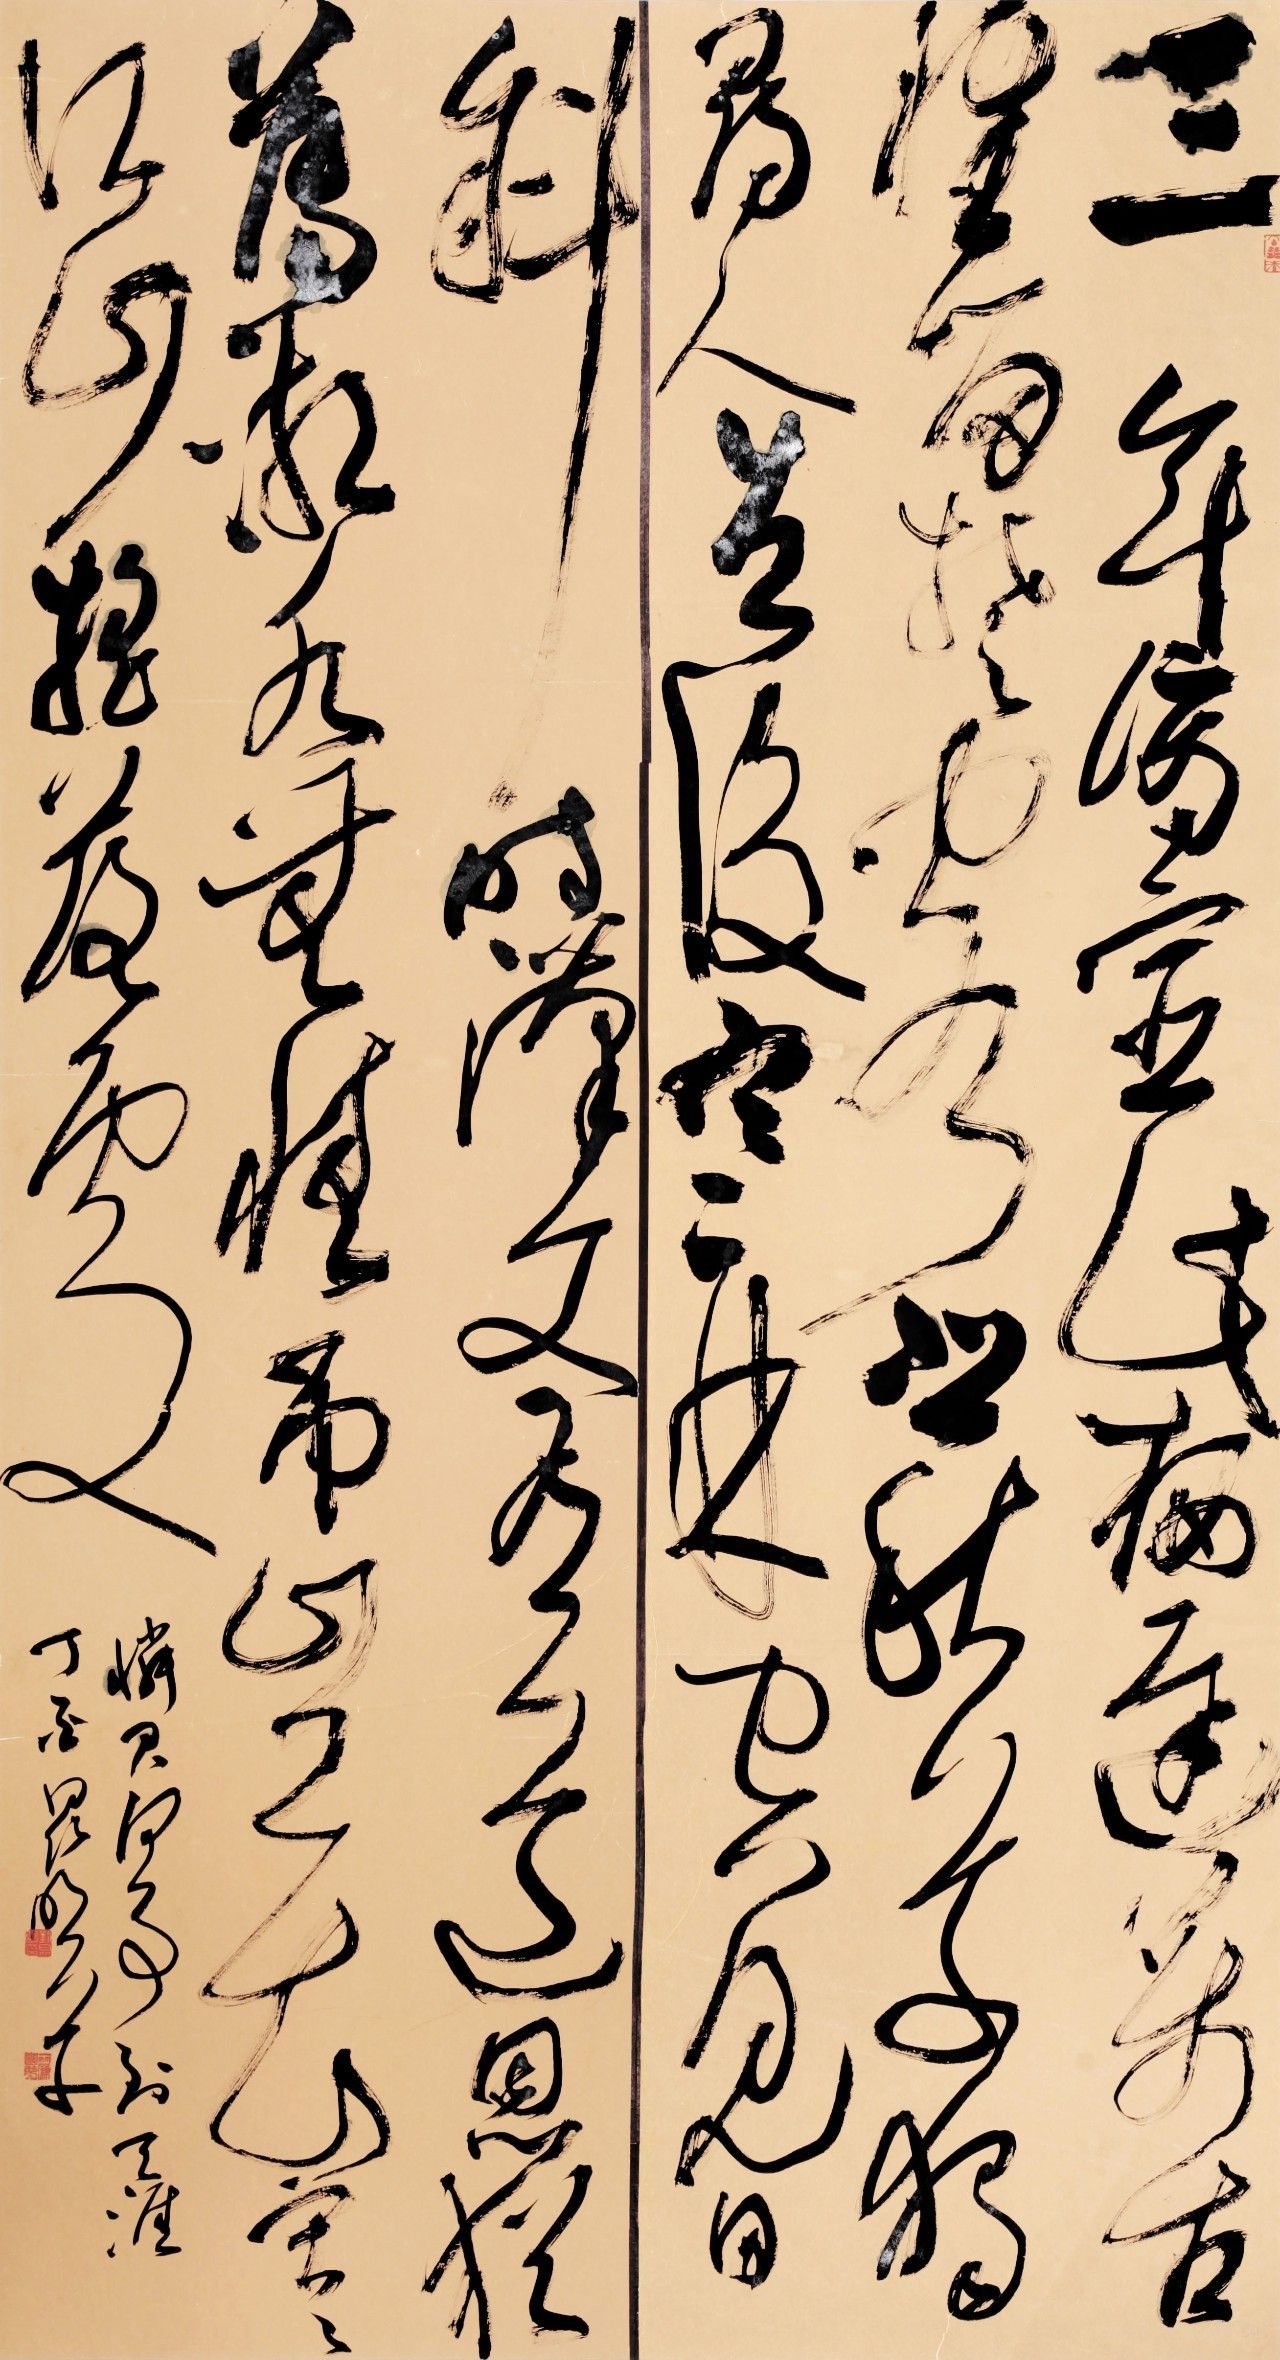 三年謫宦此栖遲萬古
惟留楚客悲秋草獨
尋人去後寒林空見日
斜時漢文有道恩猶
薄湘水無情弔豈知寂々
江山搖落處
憐君何事到天涯
丁酉